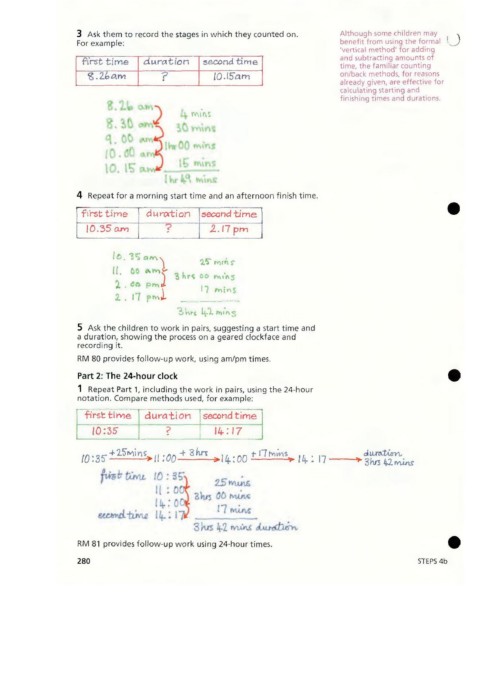 3 Ask them to record the stages in which they counted on.
For example:
first time duration second time
8.26am ? 10.15am
8.26 am
8.30 am
9.00 am
10.00 am
10.15 am
4 mins
30 mins
1hr 00 mins
15 mins
1 hr 49 mins
Although some children may
benefit from using the formal
'vertical method' for adding
and subtracting amounts of
time, the familiar counting
on/back methods, for reasons
already given, are effective for
calculating starting and
finishing times and durations.
4 Repeat for a morning start time and an afternoon finish time.
first time duration second time
10.35 am ? 2.17 pm
10.35 am
11.00 am
2.00 pm
2.17 pm
25 mins
3 hrs 00 mins
17 mins
3 hrs 42 mins
5 Ask the children to work in pairs, suggesting a start time and
a duration, showing the process on a geared clockface and
recording it.
RM 80 provides follow-up work, using am/pm times.
Part 2: The 24-hour clock
1 Repeat Part 1, including the work in pairs, using the 24-hour
notation. Compare methods used, for example:
first time duration second time
10:35 ? 14:17
10:35 +25mins 11:00 + 3hrs 14:00 +17mins 14:17 duration
3hrs 42 mins
first time 10:35
11:00
14:00
second time 14:17
25 mins
3hrs 00 mins
17 mins
3hrs 42 mins duration
RM 81 provides follow-up work using 24-hour times.
280 STEPS 4b